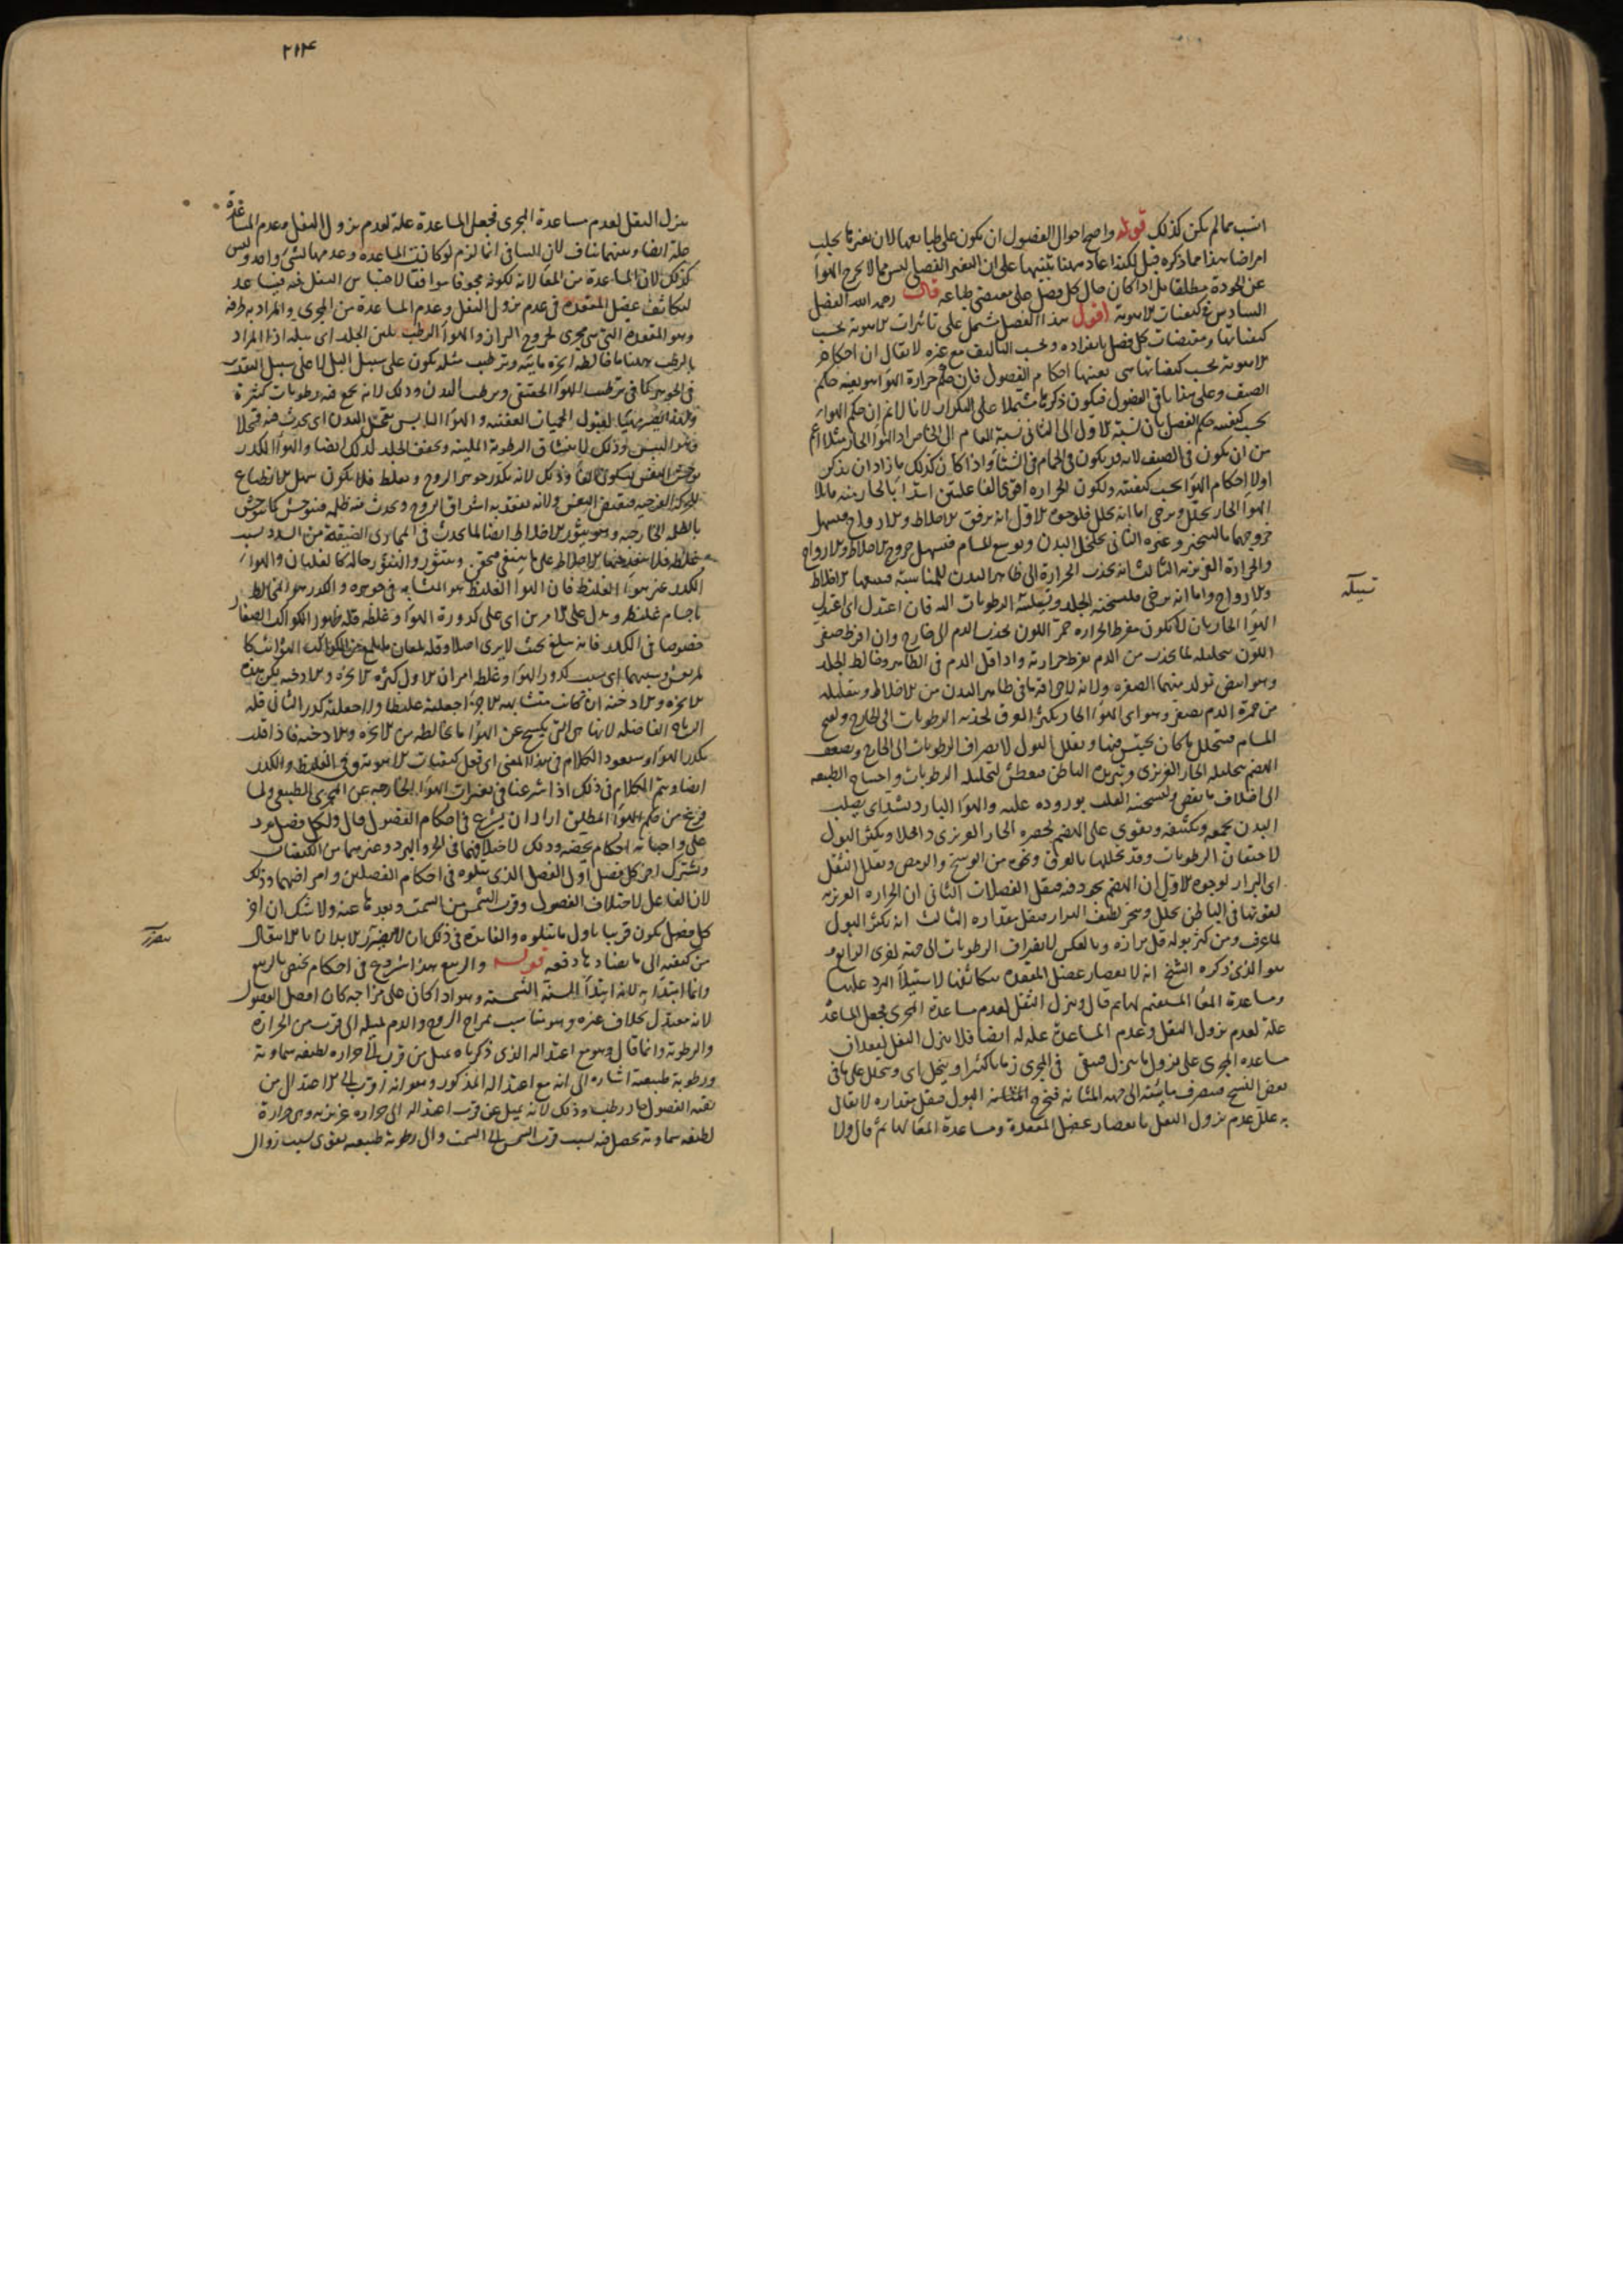 انسب مما لم يكن كذلك قوله واصح احوال الفصول ان يكون على طبائعها لان تغيرها يجلب
امراضا هذا مما ذكره قبل لكنه اعاد ههنا تنبيها على ان التغير الفصلي ليس مما لا يخرج الهواء
عن الجودة مطلقا بل اذا كان حال كل فصل على مقتضى طباعه قال رحمه الله الفصل
السادس في كيفيات الاهوية اقول هذا الفصل يشتمل على تاثيرات الاهوية بحسب
كيفياتها ومقتضيات كل فصل بانفراده وبحسب التاليف مع غيره لا يقال ان احكام
الاهوية بحسب كيفياتها هي بعينها احكام الفصول فان حكم حرارة الهواء هو بعينه حكم
الصيف وعلى هذا باقي الفصول فيكون ذكرها مشتملا على التكرار لانا لا نم ان حكم الهواء
بحسب كيفيته حكم الفصل بل نسبة الاول الى الثاني نسبة العام الى الخاص اذ الهواء الحار مثلا اعم
من ان يكون في الصيف لانه قد يكون في الحمام في الشتاء واذا كان كذلك اراد ان يذكر
اولا احكام الهواء بحسب كيفيته ولكون الحرارة اقوى الفاعلتين ابتدا بالحار منه قائلا
الهواء الحار يحلل ويرخى اما انه يحلل فلوجوه الاول انه يرقق الاخلاط والارواح فيسهل
خروجهما بالتبخر وغيره الثاني يخلخل البدن ويوسع المسام فيسهل خروج الاخلاط والارواح
والحرارة الغريزية الثالث انه يجذب الحرارة الى ظاهر البدن للمناسبة فيتبعها الاخلاط
والارواح واما انه يرخى فلتسخينه الجلد وتسييله الرطوبات اليه فان اعتدل اى اعتدل
الهواء الحار بان لا يكون مفرط الحرارة حمر اللون بجذب الدم الى خارج وان افرط صفر
اللون بتحليله لما يجذب من الدم بفرط حرارته واذا قل الدم في الظاهر وخالط الجلد
وهو ابيض تولد بينهما الصفرة ولانه لاحراقه ما في ظاهر البدن من الاخلاط وبتقليله
من حمرة الدم يصفر وهو اى الهواء الحار يكثر العرق لجذبه الرطوبات الى الخارج ويفتح
المسام فيتحلل ما كان يحتبس فيها ويقلل البول لانصراف الرطوبات الى الخارج ويضعف
الهضم بتحليله الحار الغريزى وتبريده الباطن ويعطش لتحليله الرطوبات واحتياج الطبيعة
الى اخلاف ما نقص ولتسخينه القلب بوروده عليه والهواء البارد يشد اى يصلب
البدن بجمعه وتكثيفه ويقوى على الهضم لحصره الحار الغريزى داخلا ويكثر البول
لاحتقان الرطوبات وقلة تحللها بالعرق ونحوه من الوسخ والرمص ويقلل الثفل
اى البراز لوجوه الاول ان الهضم يجود فيه فيقل الفضلات الثاني ان الحرارة الغريزية
لقوتها في الباطن تحلل وتبخر لطيف البراز فيقل مقداره الثالث انه يكثر البول
لما عرف ومن كثر بوله قل برازه وبالعكس لانصراف الرطوبات الى جهة اخرى الرابع و
هو الذى ذكره الشيخ انه لانعصار عضل المقعدة بتكاثفها لاستيلاء البرد عليها
ومساعدة المعا المستقيم لها ثم قال وينزل الثفل لعدم مساعدة المجرى فجعل المساعدة
علة لعدم نزول الثفل وعدم المساعدة علة له ايضا فلا ينزل الثفل لفقدان
مساعدة المجرى على نزول ما ينزل فيبقى في المجرى زمانا كثيرا وينحل اى ويتحلل على باقي
بعض النسخ فينصرف مائيته الى جهة المثانة فيخرج البول فيقل مقداره لا يقال
به علل عدم نزول الثفل بانعصار عضل المقعدة ومساعدة المعا لها ثم قال ولا
تسلة
٢١٤
ينزل الثفل لعدم مساعدة المجرى فجعل المساعدة علة لعدم نزول الثفل وعدم المساعدة
علة ايضا وبينهما تناف لان التنافى انما لزم لو كانت المساعدة وعدمها لشئ واحد وليس
كذلك لان المساعدة من المعا لانه لكونه مجوفا موافقا لاحتباس الثفل فيه فيساعد
لتكاثف عضل المقعدة في عدم نزول الثفل وعدم المساعدة من المجرى والمراد به طرفه
وهو المقعدة التى هى مجرى لخروج البراز والهواء الرطب يلين الجلد اى يبله اذ المراد
بالرطب ههنا ما خالطه ابخرة مائية وترطيب مثله يكون على سبيل البل لا على سبيل التغذية
في الجوهر كما في ترطيب الهواء الحقيقى ويرطب البدن وذلك لانه يجمع فيه رطوبات كثيرة
ولهذا يصير مهيئا لقبول الحميات العفنية والهواء اليابس يقحل البدن اى يحدث فيه قحلا
وهو اليبس وذلك لانتشاف الرطوبة الملينة ويجفف الجلد لذلك ايضا والهواء الكدر
يوحش النفس وذلك لانه يكدر جوهر الروح ويغلظ فلا يكون سهل الانطباع
للحركة الفرحية فينقبض النفس ولانه يفقد به اشراق الروح ويحدث فيه ظلمة فيتوحش كما يتوحش
بالظلمة الخارجة وهو يثور الاخلاط ايضا لما يحدث في المجارى الضيقة من السدد بسبب
غلظه فلا تنفذ فيها الاخلاط على ما ينبغى فيحتقن ويتثور والتثور حالة كالغليان والهواء
الكدر غير الهواء الغليظ فان الهواء الغليظ هو المتشابه في جوهره والكدر هو المخالط
باجسام غليظة ويدل على الامرين اى على كدورة الهواء وغلظه قلة ظهور الكواكب الصغار
خصوصا في الكدر فانه يبلغ بحيث لا يرى اصلا وقلة لمعان ما يلمع من الكواكب الثوابت كا
لمرتعش وسببهما اى سبب كدور الهواء وغلظه امران الاول كثرة الابخرة والادخنة لكن هذه
الابخرة والادخنة ان كانت متشابهة الاجزاء جعلته غليظا والا جعلته كدرا الثاني قلة
الرياح الفاضلة لانها هى التى يكسح عن الهواء ما يخالطه من الابخرة والادخنة فاذا قلت
تكدر الهواء وسيعود الكلام في هذا المعنى اى فعل كيفيات الاهوية وفي الغليظ والكدر
ايضا ويتم الكلام في ذلك اذا شرعنا في تغيرات الهواء الخارجة عن المجرى الطبيعى ولما
فرغ من حكم الهواء المطلق اراد ان يشرع في احكام الفصول قال ولكل فصل يرد
على واجباته احكام تخصه وذلك لاختلافها في الحر والبرد وغيرهما من الكيفيات
ويشترك اخر كل فصل اول الفصل الذى يتلوه في احكام الفصلين وامراضهما وذلك
لان الفاعل لاختلاف الفصول وقرب الشمس من السمت وبعدها عنه ولا شك ان اخر
كل فصل يكون قريبا باول ما يتلوه والفائدة في ذلك ان لا يتضرر الابدان بالانتقال
من كيفية الى ما يضادها دفعة قوله والربيع هذا شروع في احكام يختص بالربيع
وانما ابتدا به لانه ابتداء السنة الشمسية وهو اذا كان على مزاجه كان افضل الفصول
لانه معتدل بخلاف غيره وهو مناسب لمزاج الروح والدم لميله الى قرب من الحرارة
والرطوبة وانما قال وهو مع اعتداله الذى ذكرناه يميل من قرب الى حرارة لطيفة سماوية
ورطوبة طبيعية اشارة الى انه مع اعتداله المذكور وهو انه اقرب الى الاعتدال من
بقية الفصول حار رطب وذلك لانه يميل عن قرب اعتداله الى حرارة غريزية وهى حرارة
لطيفة سماوية تحصل فيه بسبب قرب الشمس الى السمت والى رطوبة طبيعية يقوى بسبب زوال